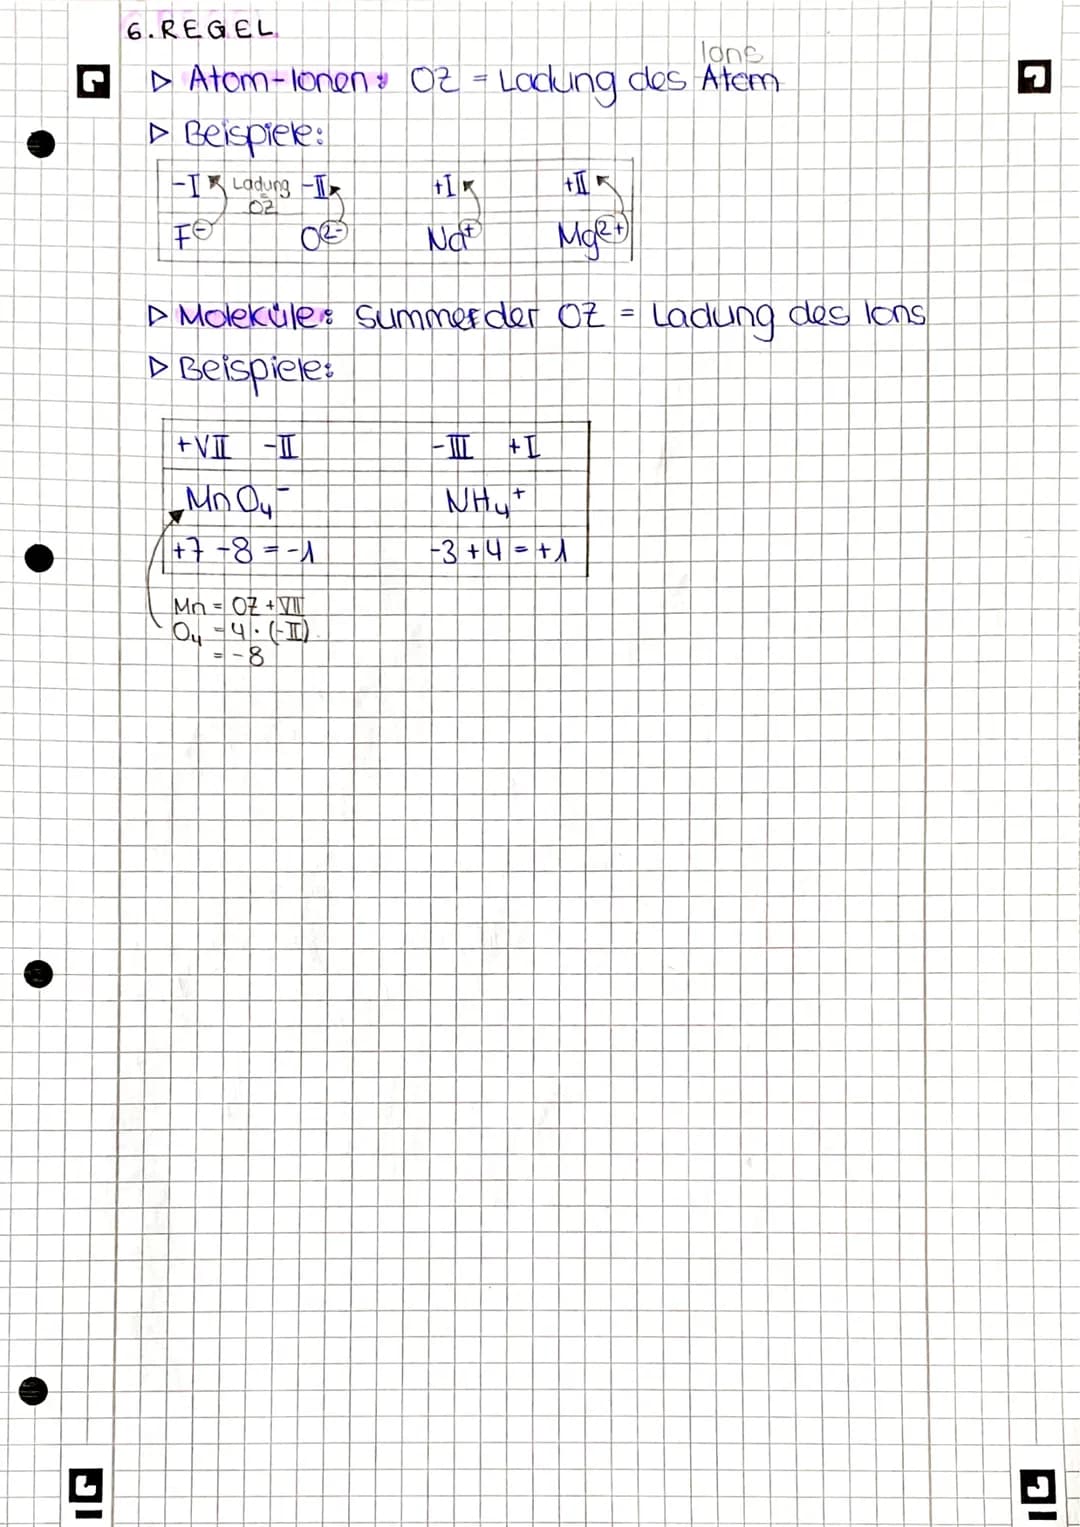 6. REGEL
Ions
▷ Atom-Ionen: OZ = Ladung des Atom
▷ Beispiele:
-I Ladung -II +I +II
OZ
F⁻ O²⁻ Na⁺ Mg²⁺
▷ Moleküle: Summe der OZ = Ladung des Ions
▷ Beispiele:
+VII -II -III +I
MnO₄⁻ NH₄⁺
+7 -8 = -1 -3 +4 = +1
Mn = OZ +VII
O₄ = 4 · (-II)
= -8